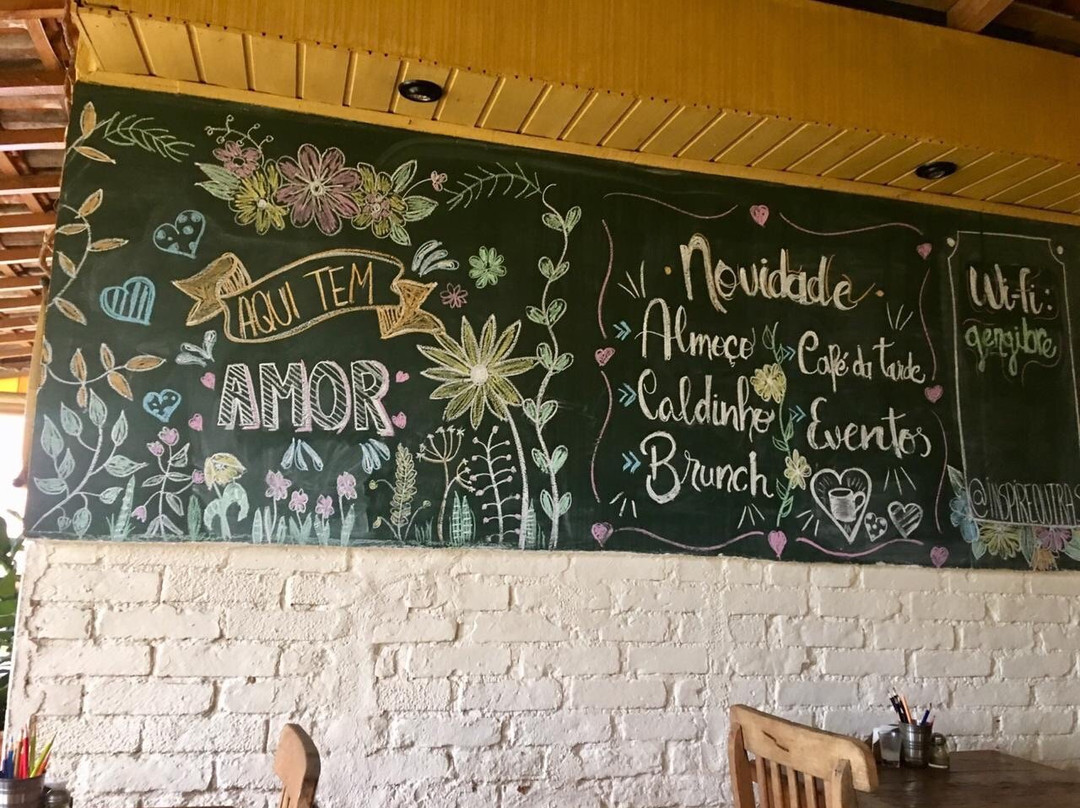 AQUI TEM
AMOR
Novidade
Almoço
Caldinho
Brunch
Café da tarde
Eventos
Wi-fi:
gengibre